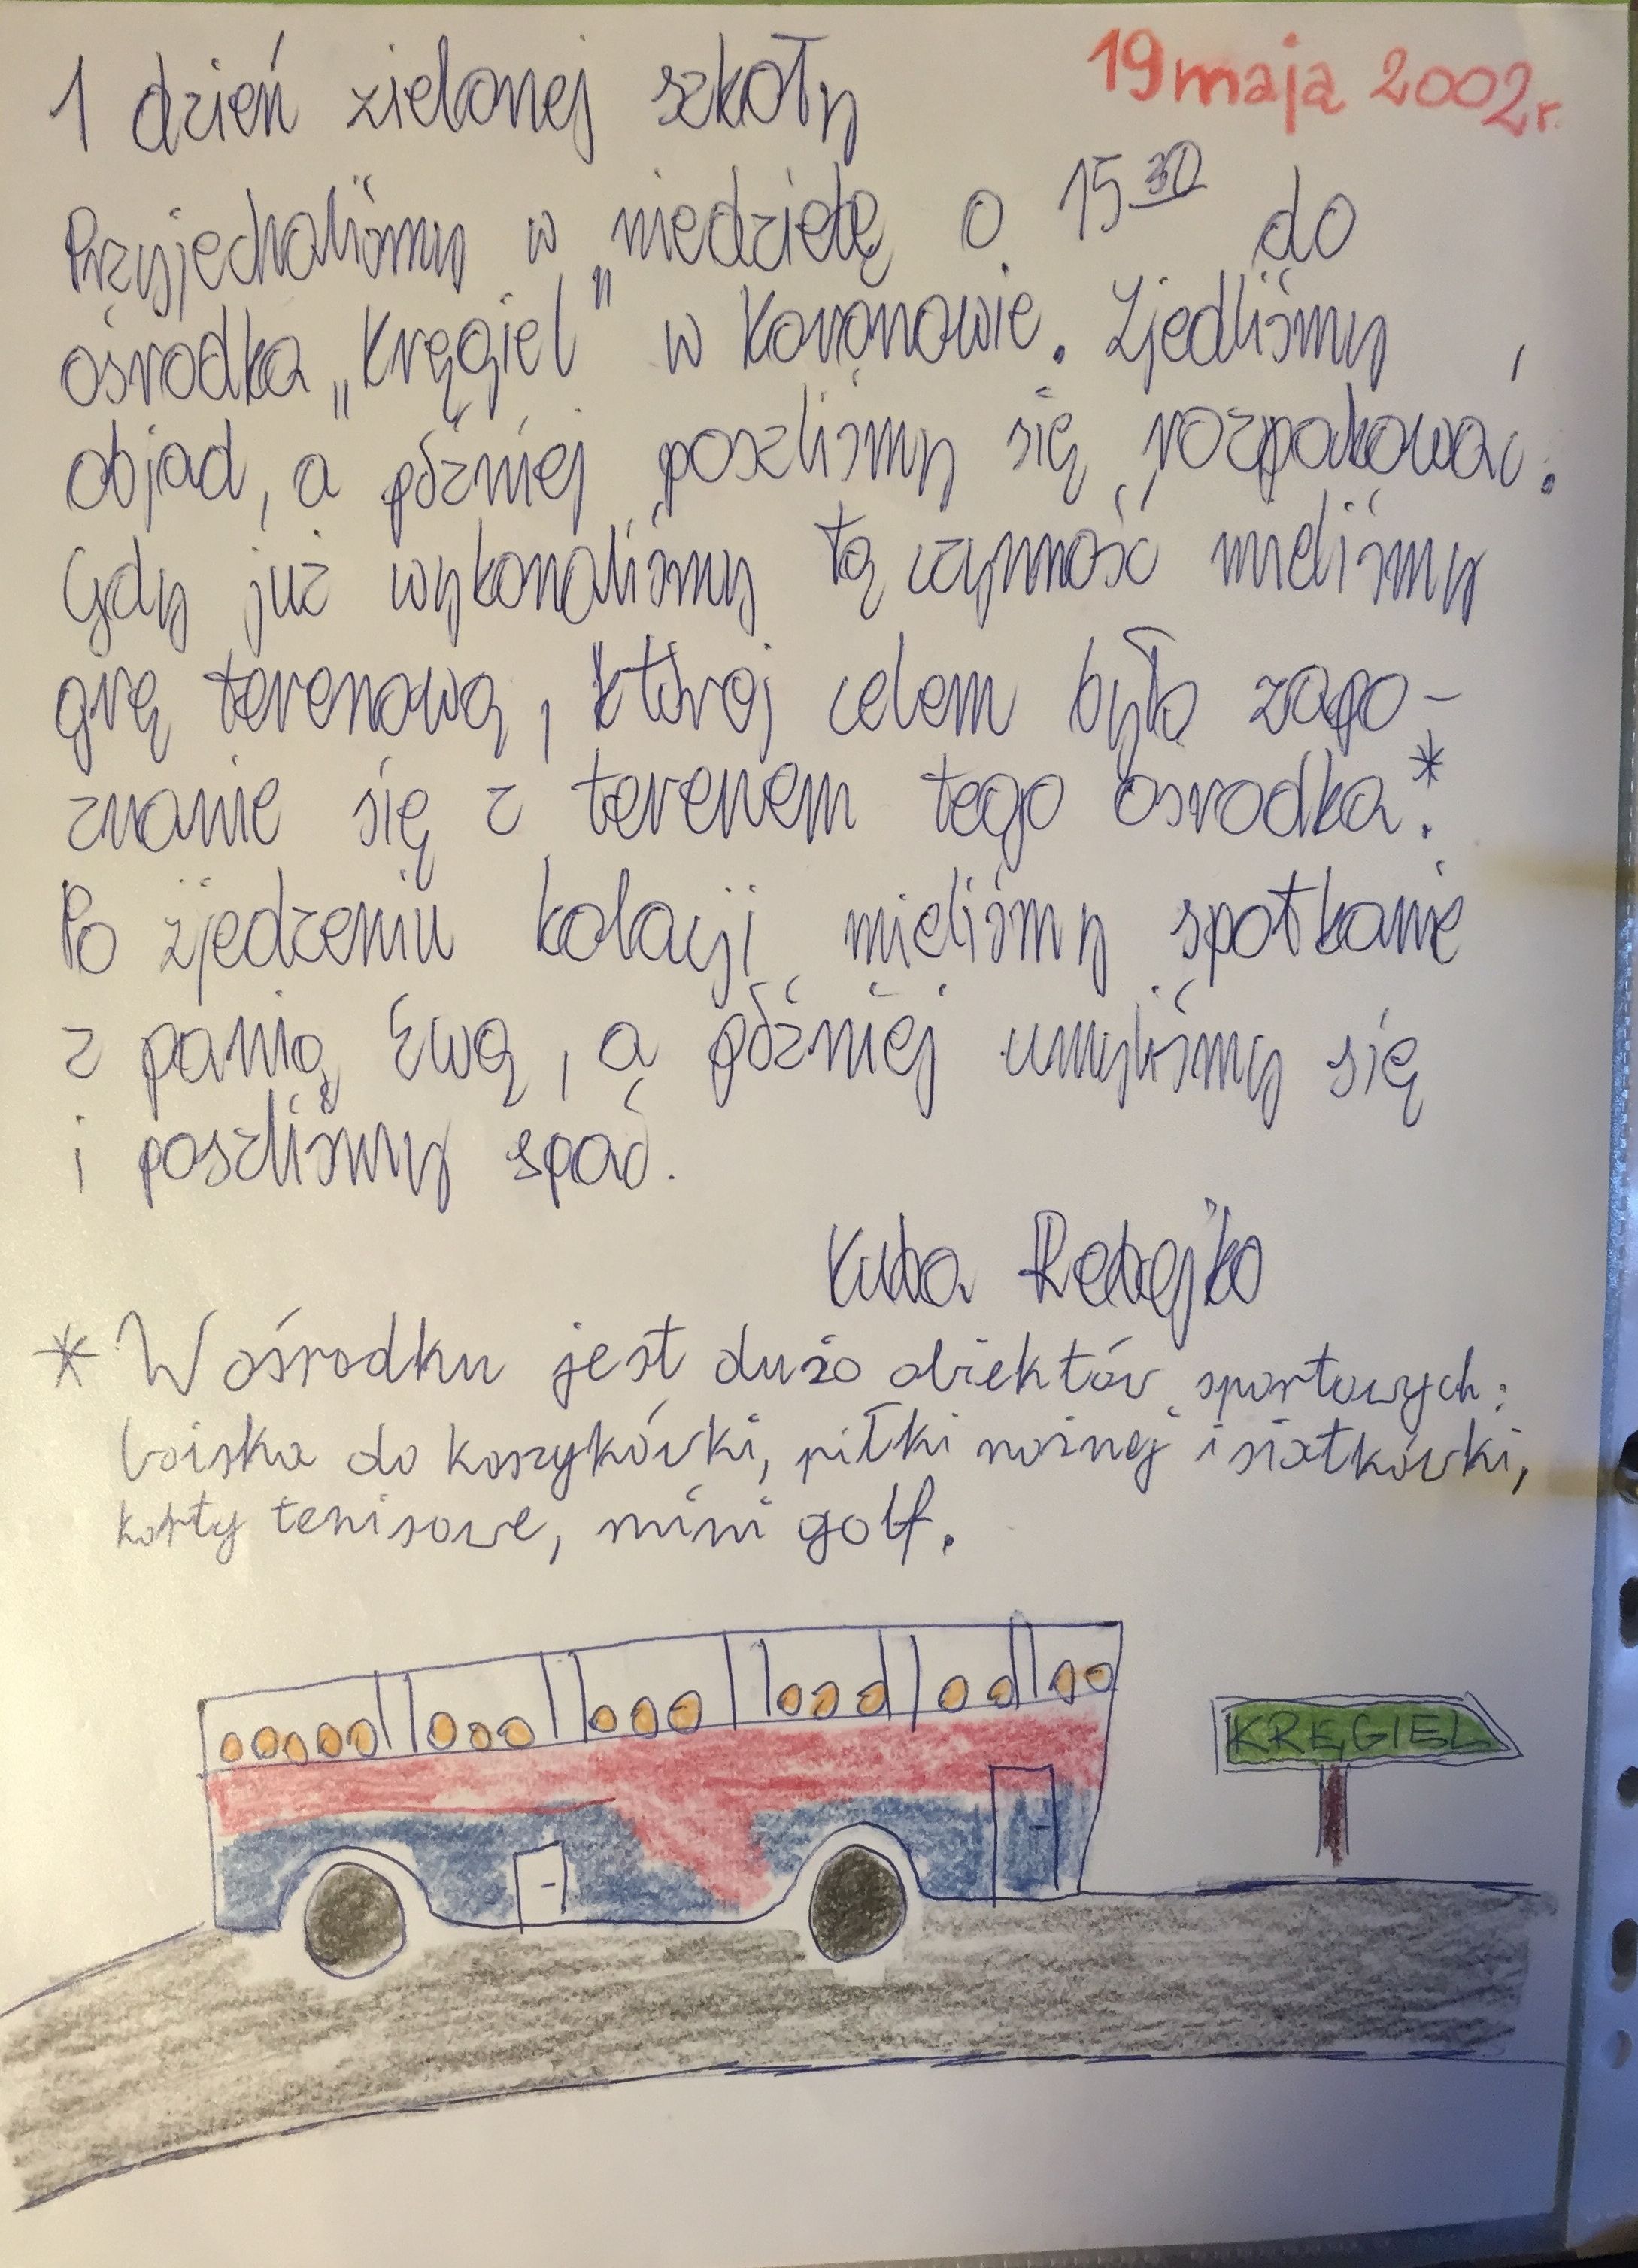 1 dzień zielonej szkoły 19 maja 2002r.
Przyjechaliśmy w niedzielę o 15 30 do
ośrodka „Kręgiel" w Koronowie. Zjedliśmy
objad, a później poszliśmy się rozpakować.
Gdy już wykonaliśmy tą czynność mieliśmy
grę terenową, której celem było zapo-
znanie się z terenem tego ośrodka.*
Po zjedzeniu kolacji mieliśmy spotkanie
z panią Ewą, a później umyliśmy się
i poszliśmy spać.
Kuba
* W ośrodku jest dużo obiektów sportowych:
boiska do koszykówki, piłki nożnej i siatkówki,
korty tenisowe, mini golf.
KRĘGIEL